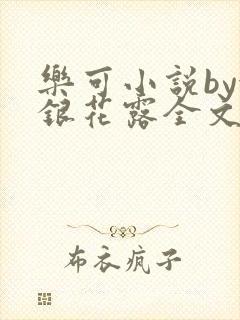 樂可小說by
銀花露全文
布衣疯子